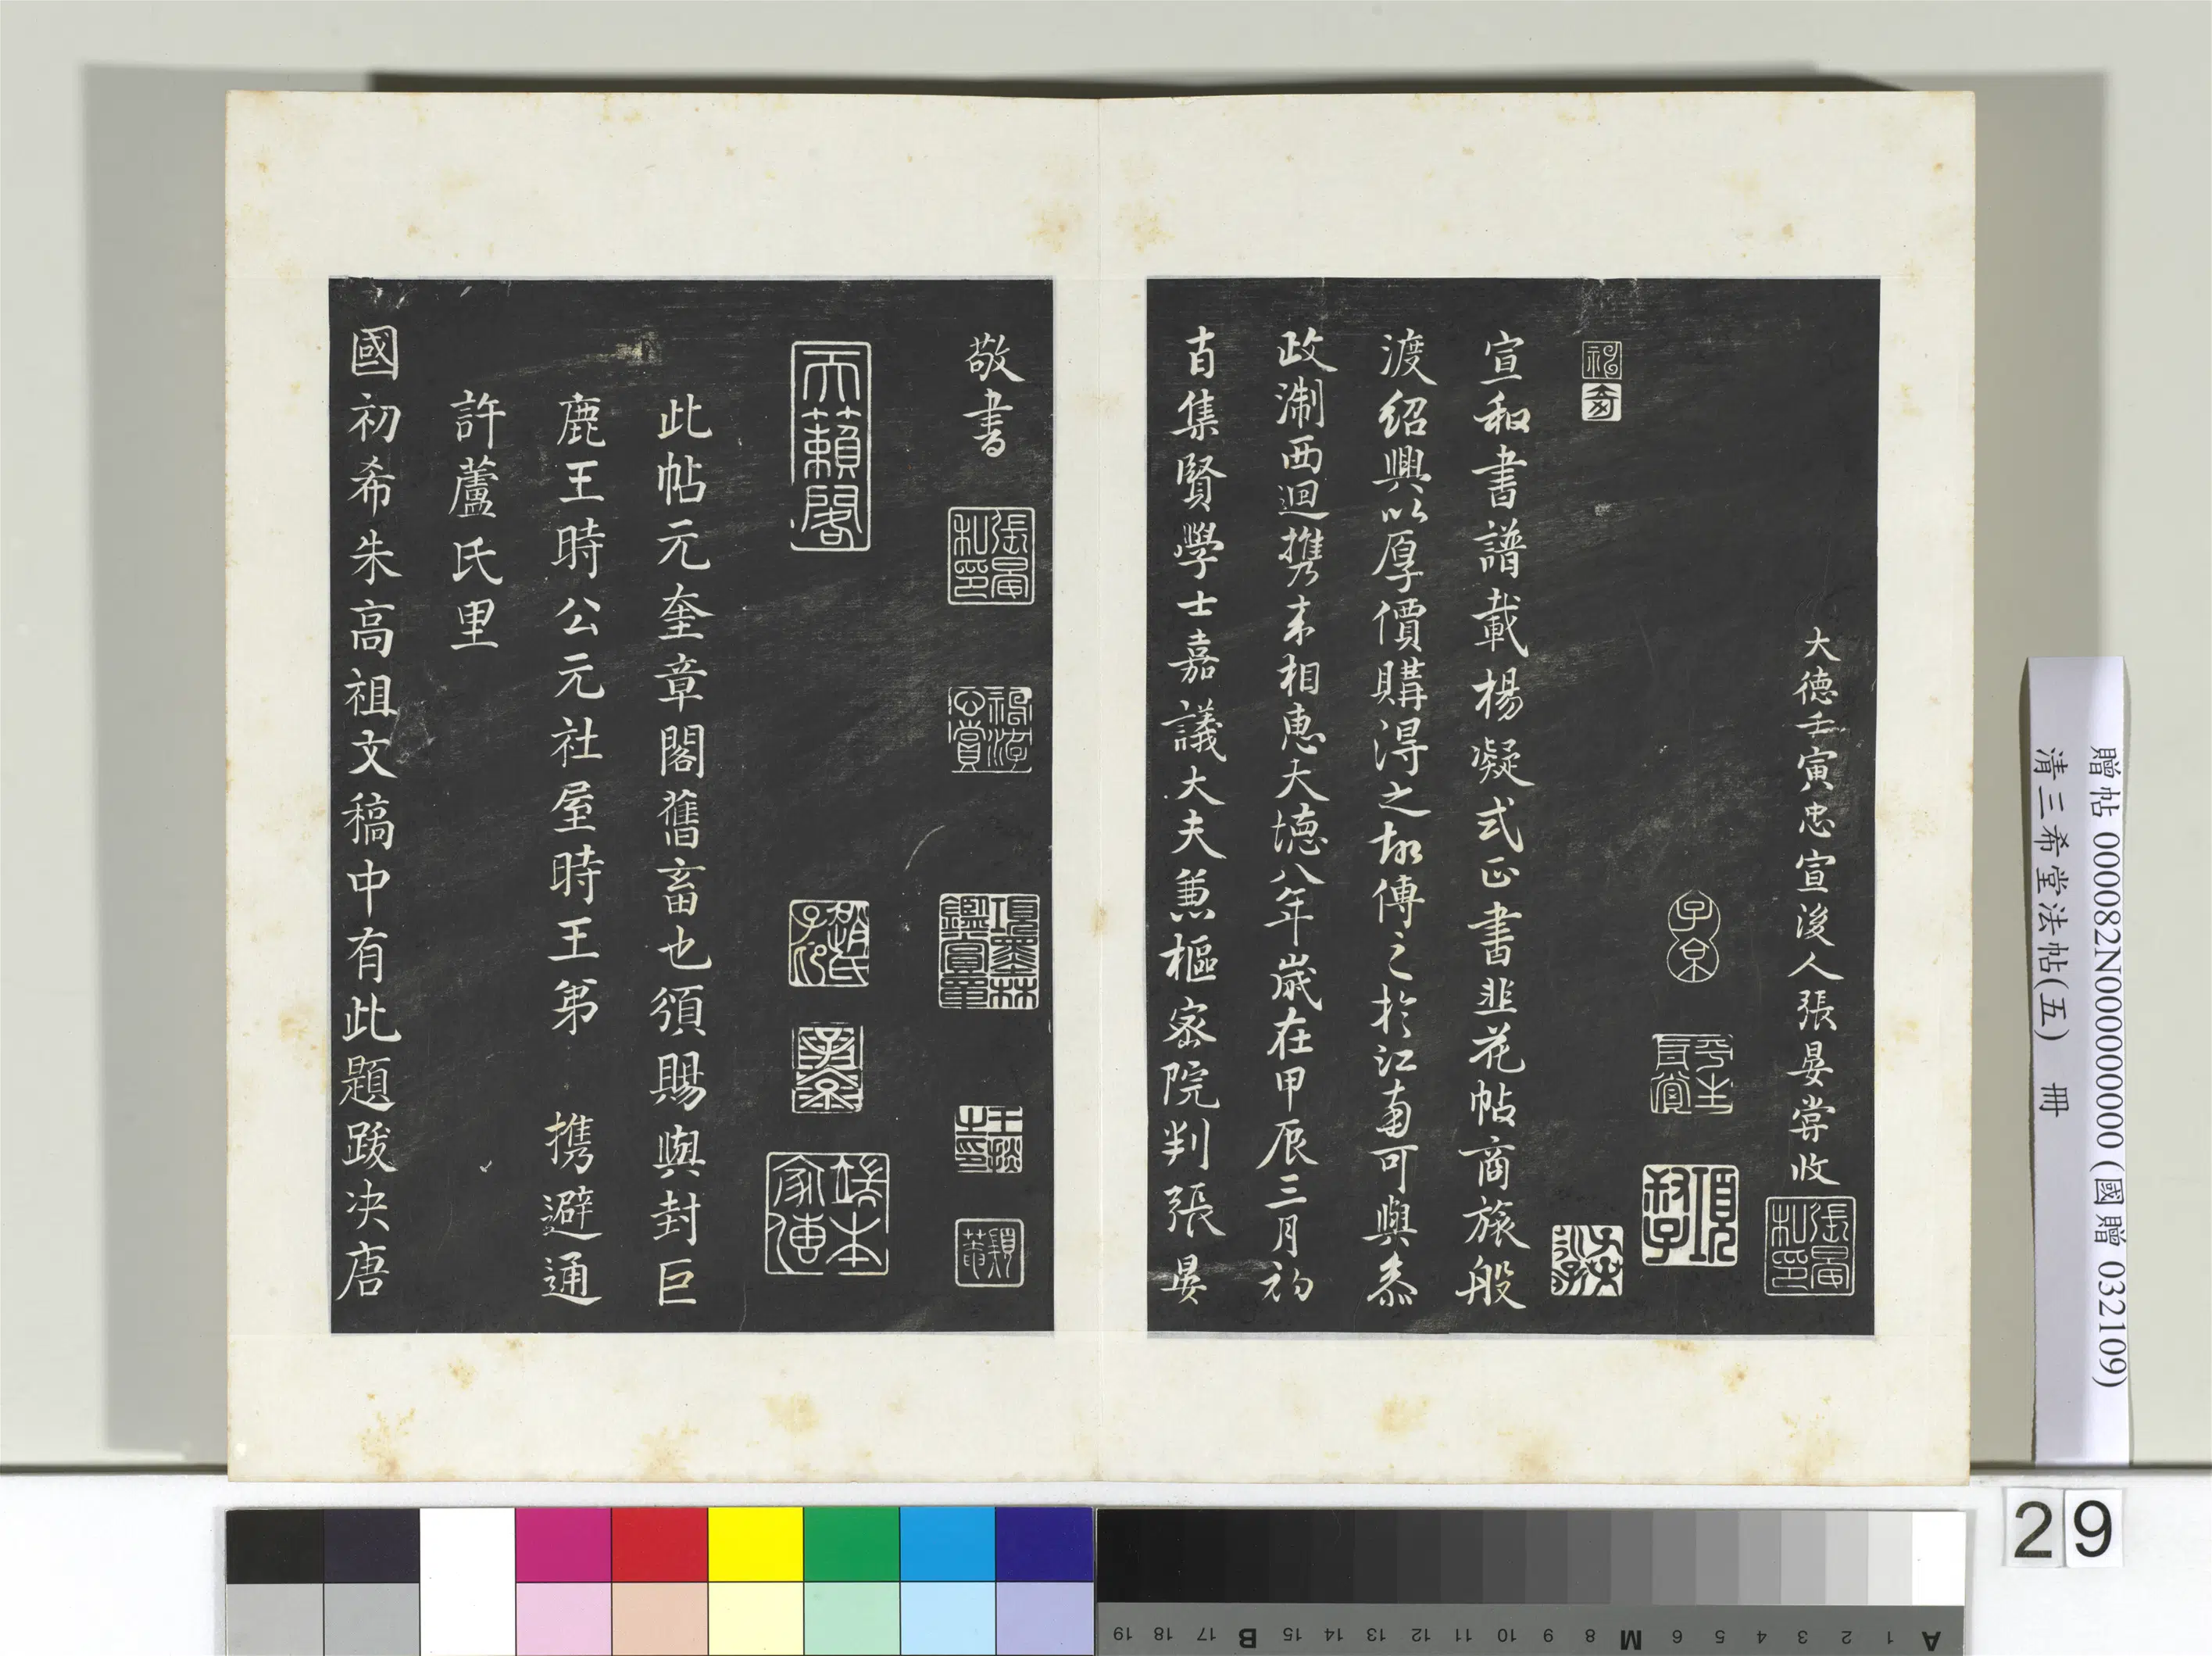 大德壬寅忠宣後人張晏嘗收
張晏私印
子京
平生真賞
項子京家珍藏
宣和書譜載楊凝式正書韭花帖商旅般
渡紹興以厚價購得之故傳之於江南可與泰
政浙西迴携来相惠大德八年歲在甲辰三月初
吉集賢學士嘉議大夫兼樞密院判張晏
敬書
張晏私印
項墨林鑑賞章
天籟閣
趙氏子印
此帖元奎章閣舊畜也頒賜與封巨
鹿王時公元社屋時王第 携避通
許蘆氏里
國初希朱高祖文稿中有此題跋决唐
贈帖 000082N000000000 (國贈 032109)
清三希堂法帖(五) 冊
29
A 1 2 3 4 5 6 M 8 9 10 11 12 13 14 15 B 17 18 19